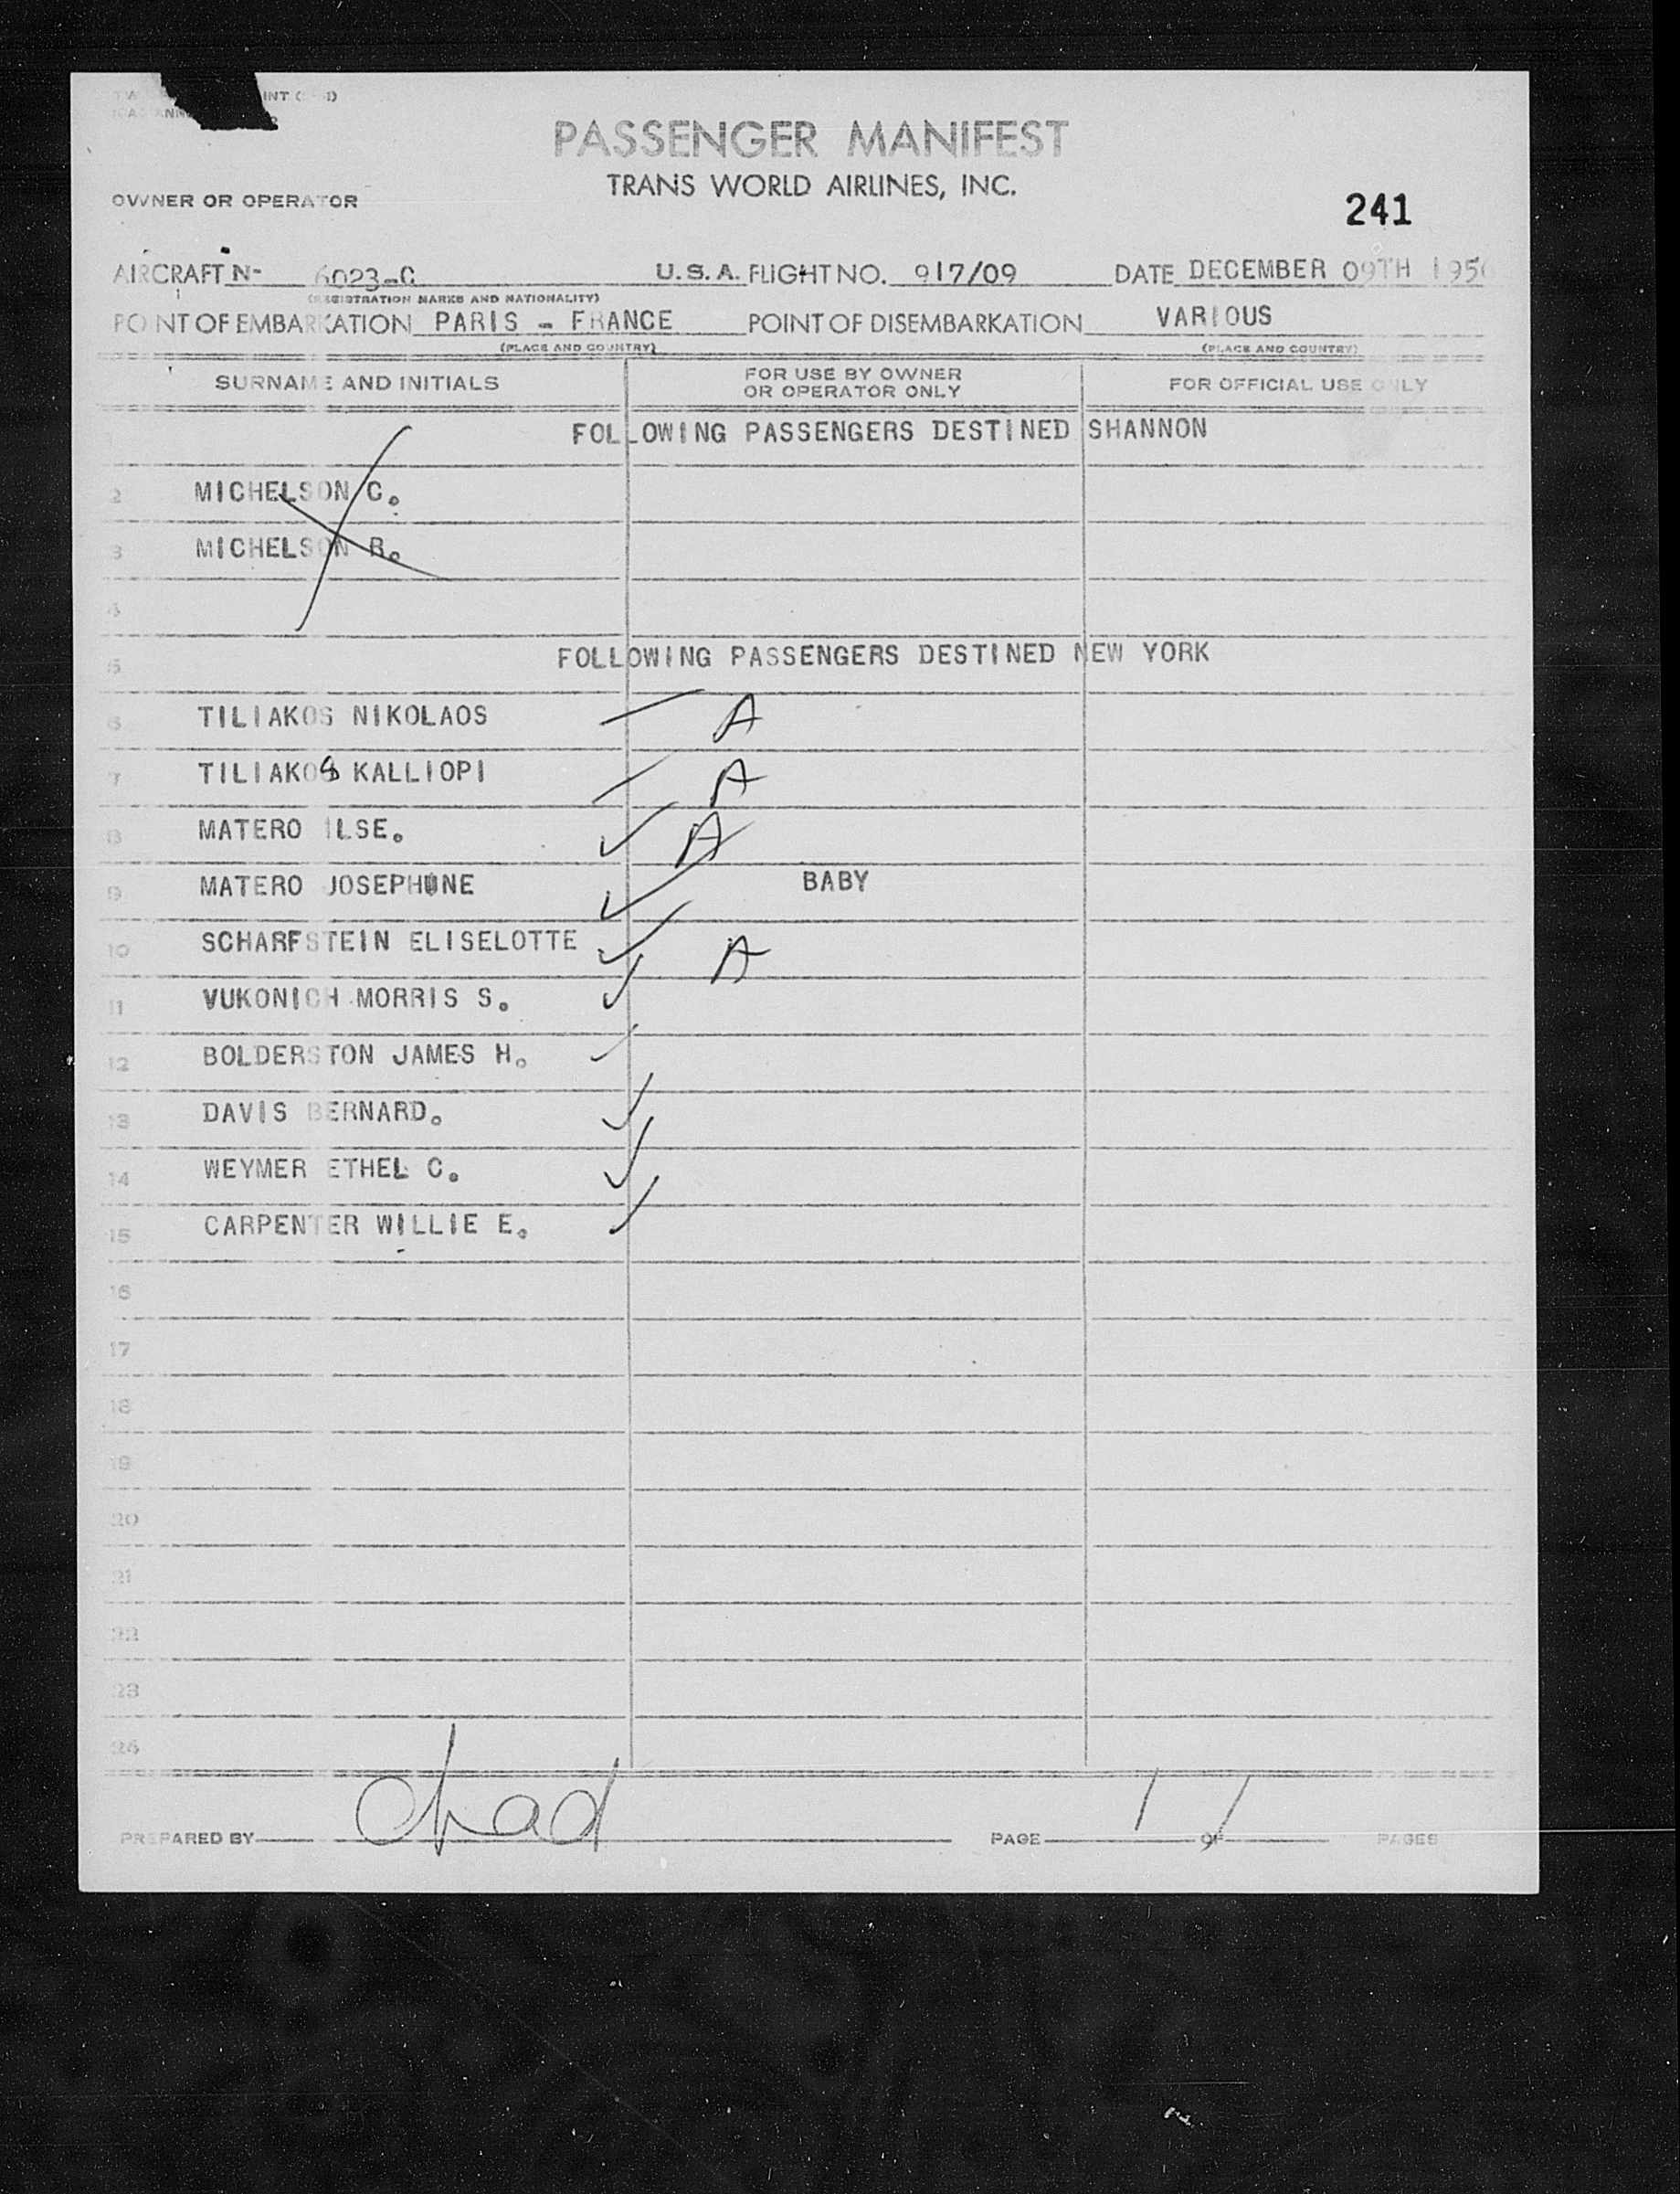 PASSENGER MANIFEST
TRANS WORLD AIRLINES, INC.
OWNER OR OPERATOR
241
AIRCRAFT N- 6023-C U.S.A. FLIGHT NO. 917/09 DATE DECEMBER 09TH 195
(REGISTRATION MARKS AND NATIONALITY)
POINT OF EMBARKATION PARIS - FRANCE POINT OF DISEMBARKATION VARIOUS
(PLACE AND COUNTRY) (PLACE AND COUNTRY)
SURNAME AND INITIALS FOR USE BY OWNER OR OPERATOR ONLY FOR OFFICIAL USE ONLY
FOLLOWING PASSENGERS DESTINED SHANNON
2 MICHELSON C.
3 MICHELSON R.
4
5 FOLLOWING PASSENGERS DESTINED NEW YORK
6 TILIAKOS NIKOLAOS A
7 TILIAKOS KALLIOPI A
8 MATERO ILSE. A
9 MATERO JOSEPHUNE BABY
10 SCHARFSTEIN ELISELOTTE A
11 VUKONICH MORRIS S.
12 BOLDERSTON JAMES H.
13 DAVIS BERNARD.
14 WEYMER ETHEL C.
15 CARPENTER WILLIE E.
16
17
18
19
20
21
22
23
24
PREPARED BY PAGE 1 OF 1 PAGES